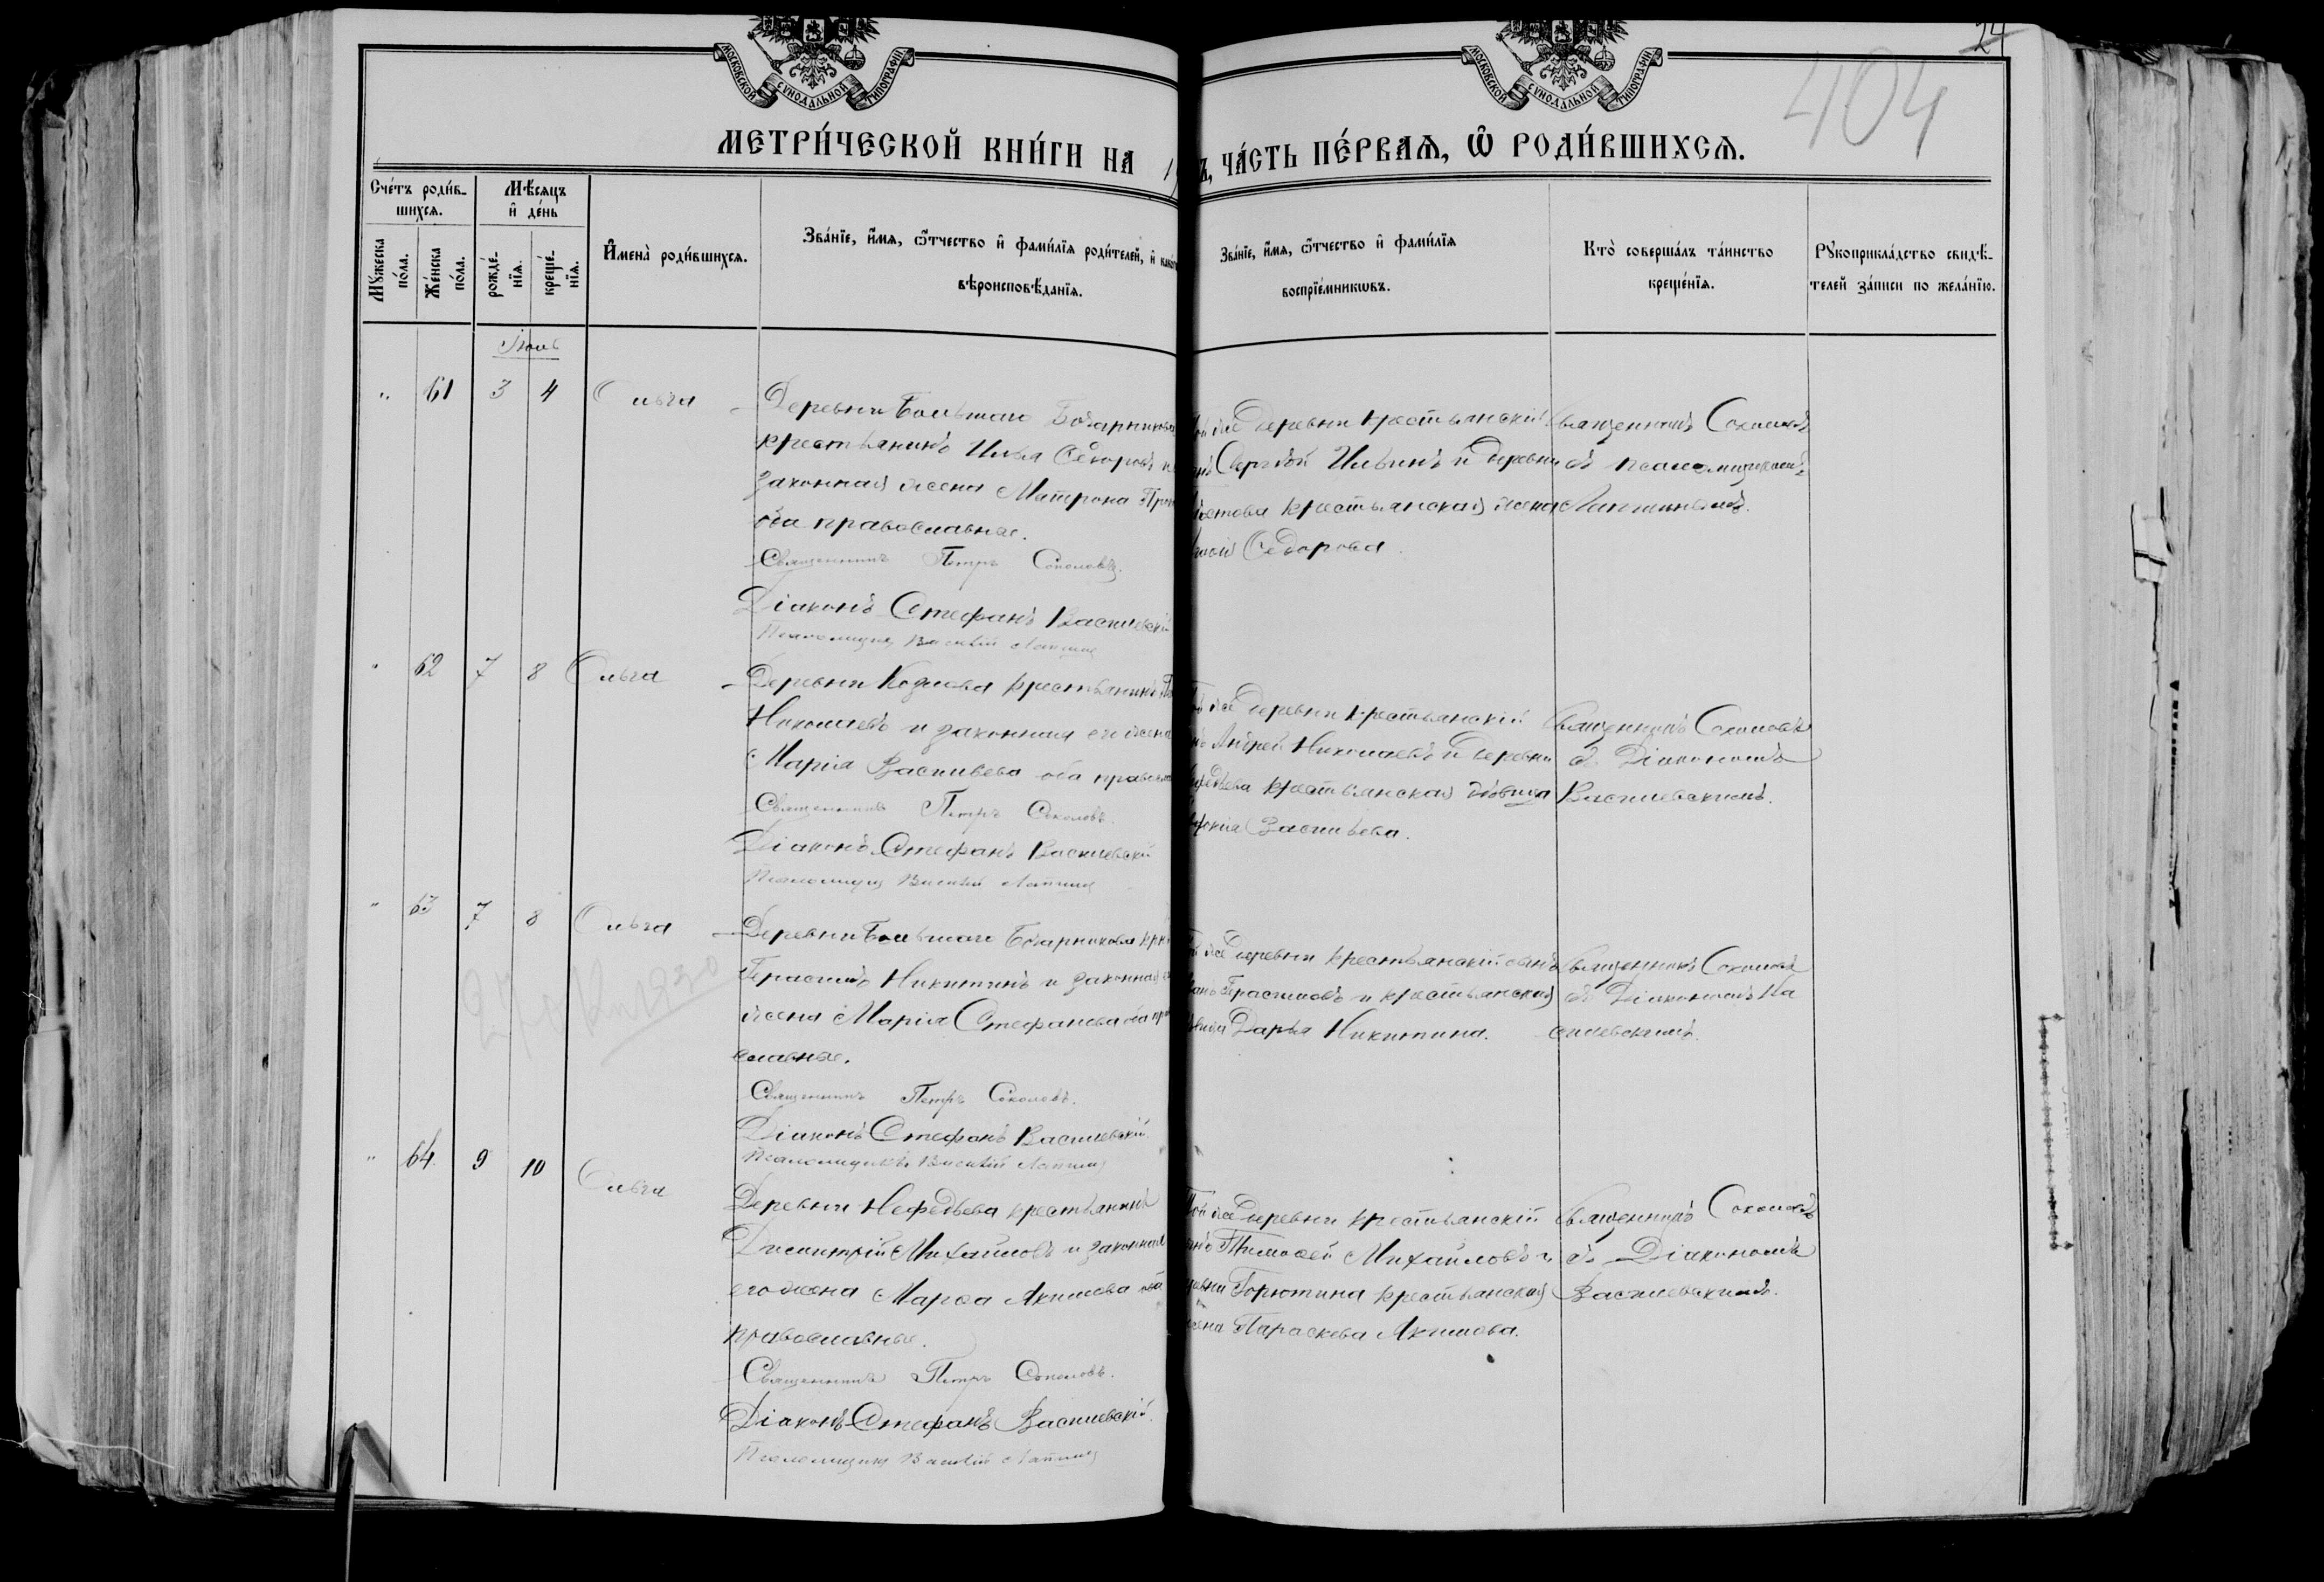 24
404
МОСКОВСКОЙ СУНОДАЛЬНОЙ ТИПОГРАФІИ.
МОСКОВСКОЙ СУНОДАЛЬНОЙ ТИПОГРАФІИ.
МЕТРИ́ЧЕСКОЙ КНИ́ГИ НА
ЧА́СТЬ ПЕ́РВАѦ, Ѡ҆ РОДИ́ВШИХСѦ.
Сче́тъ роди́в-
шихсѧ.
Мѣ́сѧцъ
и҆ де́нь
Мꙋ́жеска
по́ла.
Же́нска
по́ла.
рожде́-
нїѧ.
креще́-
нїѧ.
И҆мена̀ роди́вшихсѧ.
Зва́нїе, и҆́мѧ, ѻ҆́тчество и҆ фами́лїѧ роди́телей, и҆
вѣроисповѣ́данїѧ.
Зва́нїе, и҆́мѧ, ѻ҆́тчество и҆ фами́лїѧ
воспрїе́мникѡвъ.
Кто̀ соверша́лъ та́инство
креще́нїѧ.
Рꙋкоприкла́дство свидѣ́-
телей за́писи по жела́нїю.
Іюль
" 61 3 4 Ольга
Деревни Большаго Бочарникова
крестьянинъ Илья Сидоровъ и
законная жена Матрона
оба православные.
Священникъ Петръ Соколовъ.
Діаконъ Стефанъ Василевскій
Псаломщикъ Василій Лапшин
же деревни крестьянскій
Сергѣй Ильинъ и деревни
крестьянская жена
Сидорова.
Священникъ Соколовъ
съ псаломщикомъ
Лапшинымъ.
" 62 7 8 Ольга
Деревни Козлова крестьянинъ
Николаевъ и законная его жена
Марія Васильева оба
Священникъ Петръ Соколовъ.
Діаконъ Стефанъ Василевскій
Псаломщикъ Василій Лапшин
же деревни крестьянскій
Андрей Николаевъ и деревни
крестьянская дѣвица
Васильева.
Священникъ Соколовъ
съ Діакономъ
Василевскимъ.
" 63 7 8 Ольга
Деревни Большаго Бочарникова
Герасимъ Никитинъ и законная
жена Марія Стефанова оба
славные.
Священникъ Петръ Соколовъ.
Діаконъ Стефанъ Василевскій
Псаломщикъ Василій Лапшин
же деревни крестьянскій сынъ
Герасимовъ и крестьянская
Дарья Никитина.
Священникъ Соколовъ
съ Діакономъ Ва
силевскимъ.
" 64 9 10 Ольга
Деревни Нефедьева крестьянинъ
Димитрій Михайловъ и законная
его жена Марѳа Акимова оба
православные.
Священникъ Петръ Соколовъ.
Діаконъ Стефанъ Василевскій.
Псаломщикъ Василій Лапшин
Той же деревни крестьянскій
Тимоѳей Михайловъ и
Горютина крестьянская
жена Параскева Акимова.
Священникъ Соколовъ
съ Діакономъ
Василевскимъ.